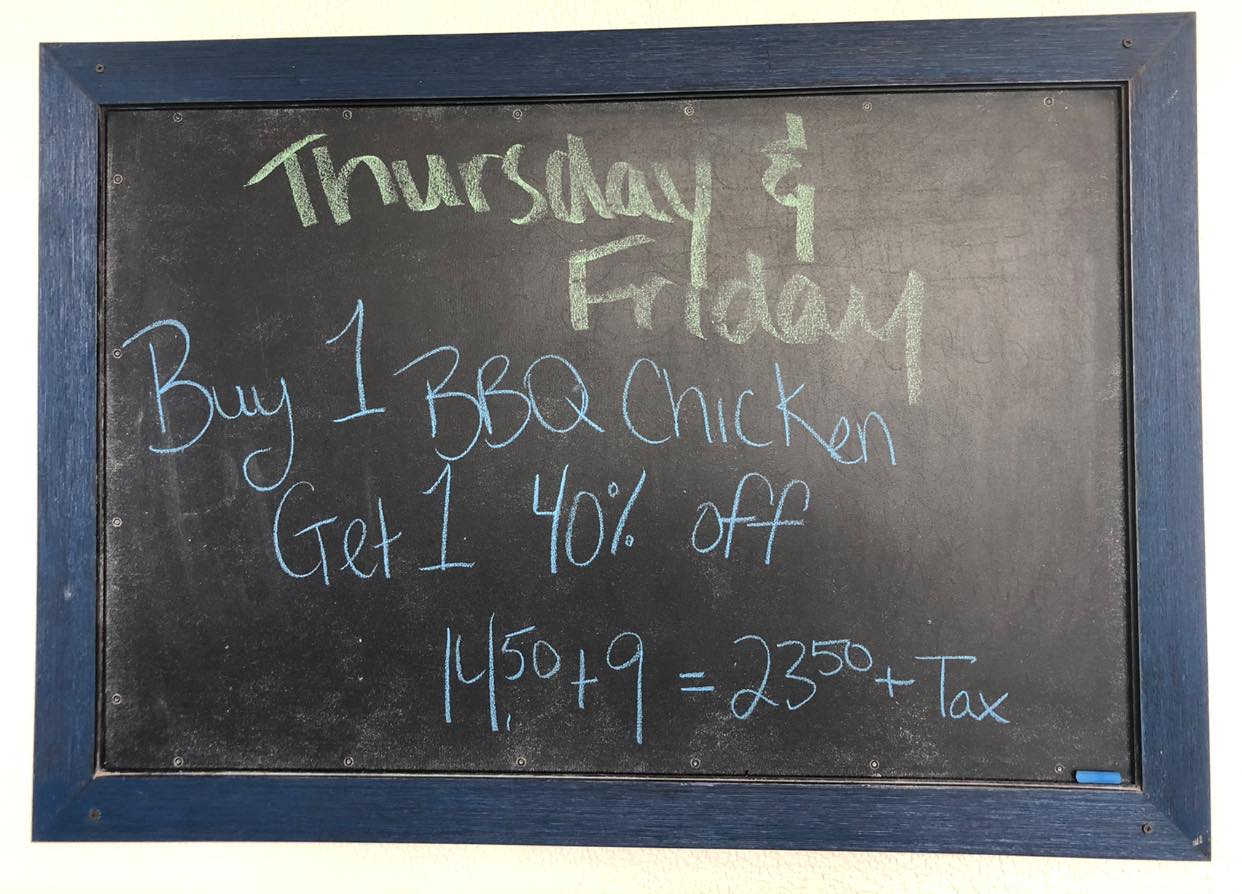 Thursday &
Friday
Buy 1 BBQ Chicken
Get 1 40% off
14.50 + 9 = 23 50 + Tax